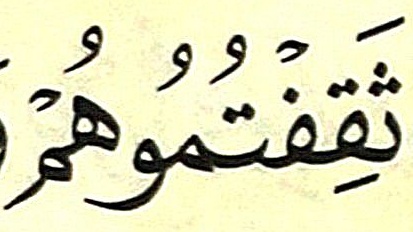 ثَقِفۡتُمُوهُمۡ